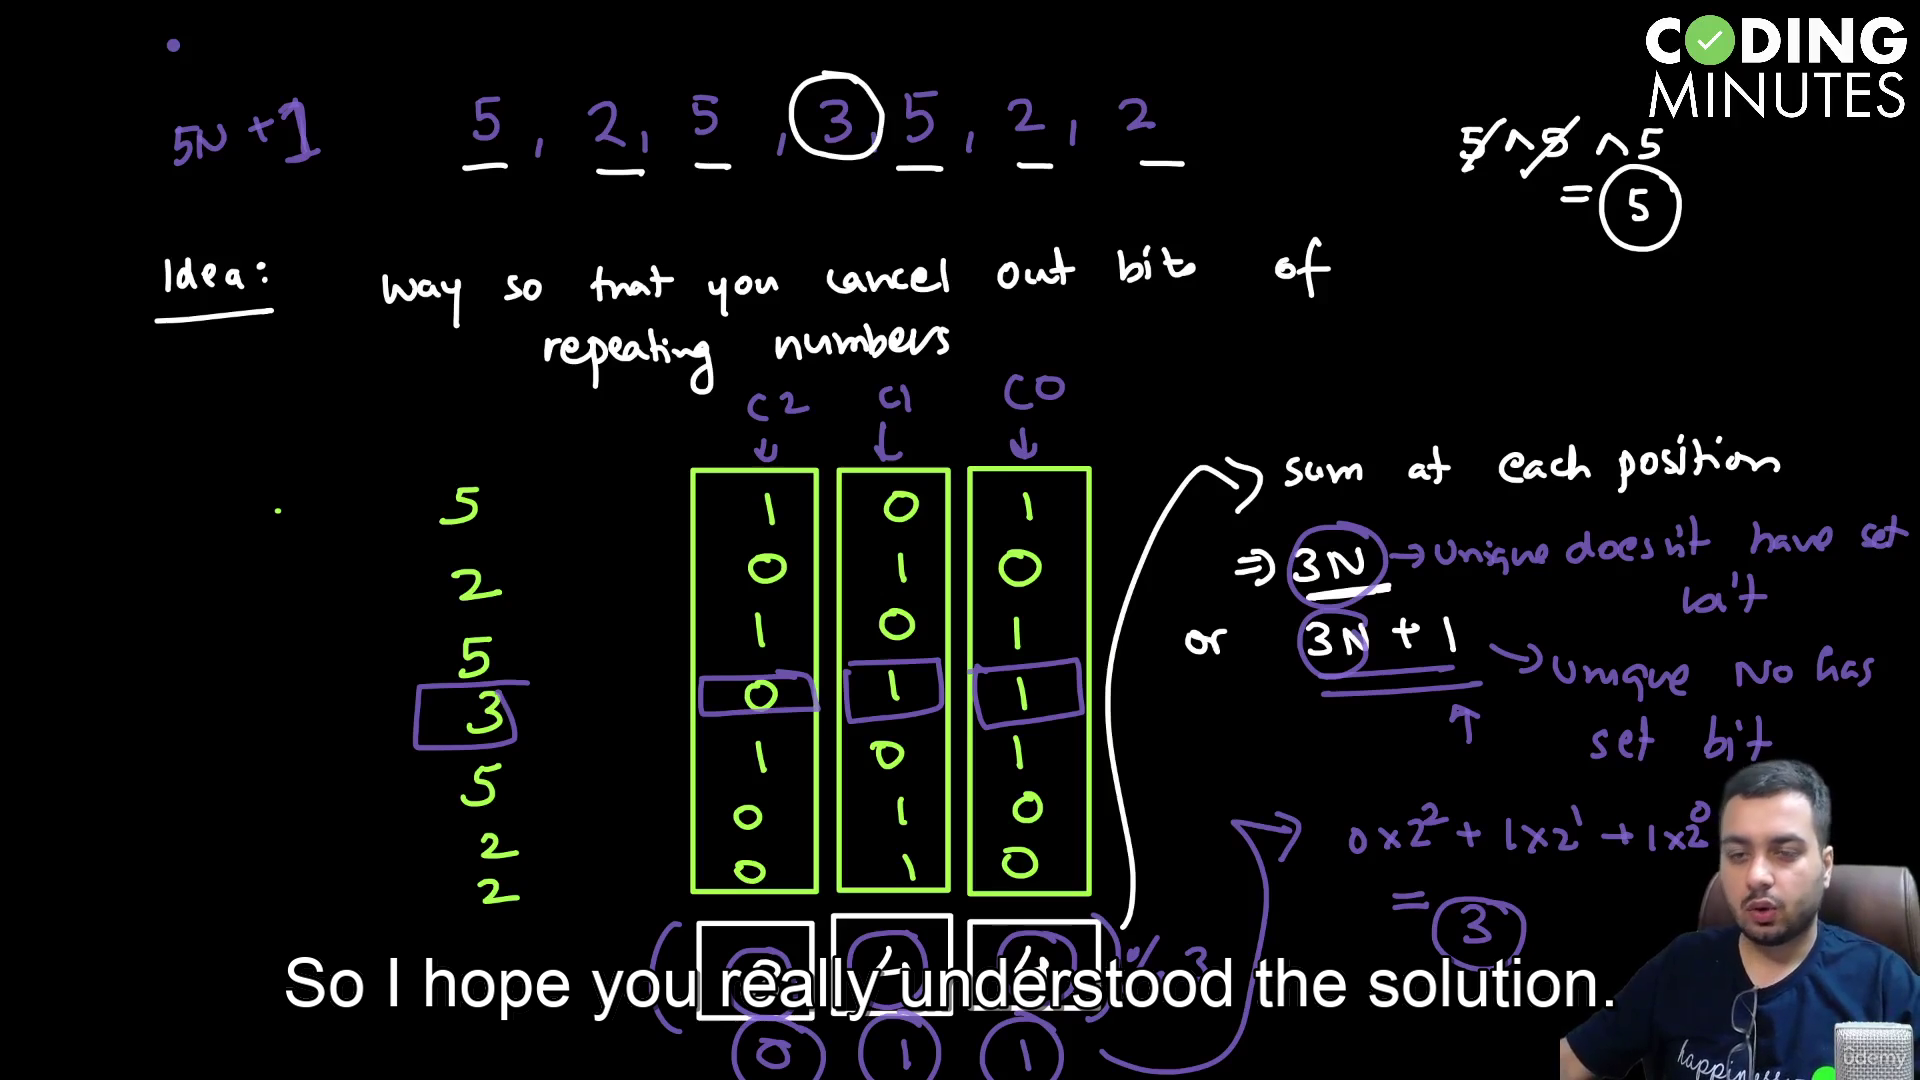 CODING
MINUTES
5N + 1 5, 2, 5, 3, 5, 2, 2
5 ^ 5 ^ 5
= 5
Idea: Way so that you cancel out bits of
repeating numbers
C2 C1 C0
5 1 0 1
2 0 1 0
5 1 0 1
3 0 1 1
5 1 0 1
2 0 1 0
2 0 1 0
sum at each position
⇒ 3N → Unique doesn't have set
bit
or 3N + 1 → Unique No has
set bit
0 x 2² + 1 x 2¹ + 1 x 2⁰
= 3
( 3 4 4 ) % 3
0 1 1
So I hope you really understood the solution.
happiness
ûdemy